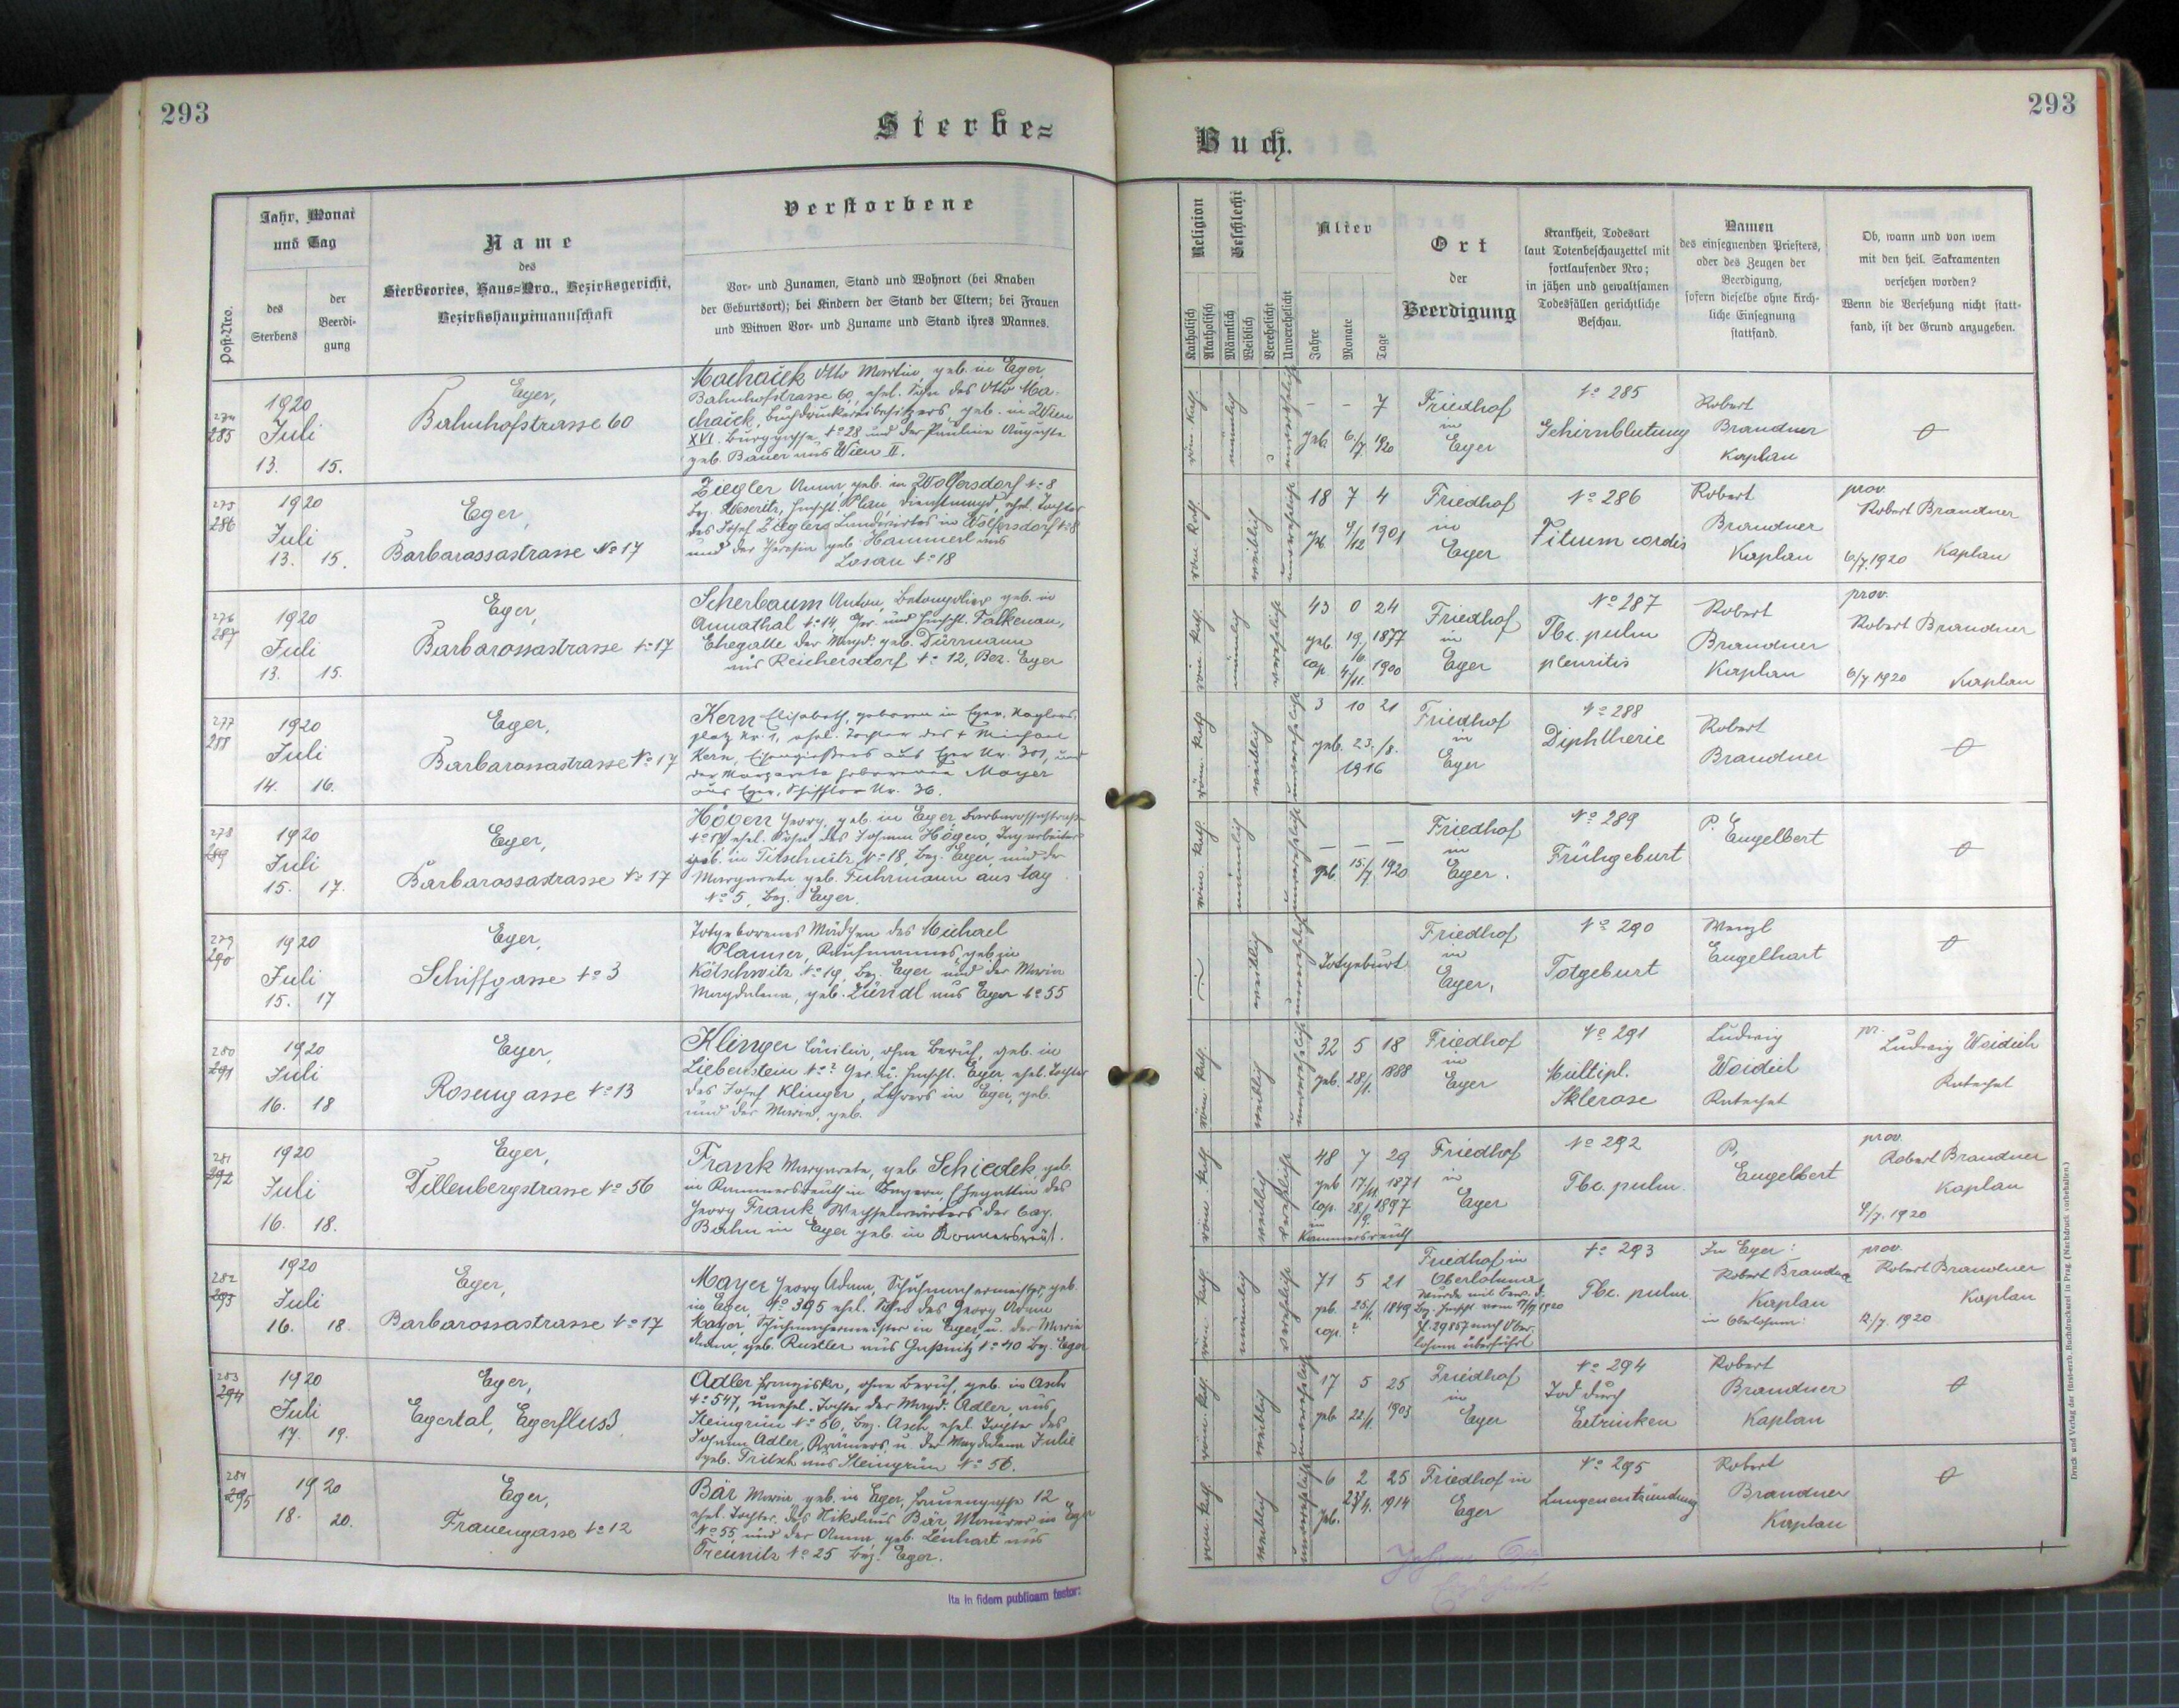 293
293
Sterbe=
Buch.
Post-Nro.
Jahr, Monat
und Tag
des
Sterbens
der
Beerdi-
gung
Name
des
Sterbeortes, Haus=Nro., Bezirksgericht,
Bezirkshauptmannschaft
Verstorbene
Vor- und Zunamen, Stand und Wohnort (bei Knaben
der Geburtsort); bei Kindern der Stand der Eltern; bei Frauen
und Witwen Vor- und Zuname und Stand ihres Mannes.
Religion
Katholisch
Akatholisch
Geschlecht
Männlich
Weiblich
Verehelicht
Unverehelicht
Alter
Jahre
Monate
Tage
Ort
der
Beerdigung
Krankheit, Todesart
laut Totenbeschauzettel mit
fortlaufender Nro;
in jähen und gewaltsamen
Todesfällen gerichtliche
Beschau.
Namen
des einsegnenden Priesters,
oder des Zeugen der
Beerdigung,
sofern dieselbe ohne kirch-
liche Einsegnung
stattfand.
Ob, wann und von wem
mit den heil. Sakramenten
versehen worden?
Wenn die Versehung nicht statt-
fand, ist der Grund anzugeben.
274
285
1920
Juli
13. 15.
Eger,
Bahnhofstrasse 60
Machaček Otto Martin geb. in Eger,
Bahnhofstrasse 60, ehel. Sohn des Otto Ma-
chaček, Buchdruckereibesitzers, geb. in Wien
XVI. Burggasse No 28 und der Pauline Auguste
geb. Bauer aus Wien II.
röm. kath.
männlich
unverehelicht
- - 7
geb. 6/7. 1920
Friedhof
in
Eger
No 285
Gehirnblutung
Robert
Brandner
Kaplan
275
286
1920
Juli
13. 15.
Eger,
Barbarossastrasse No 17
Ziegler Anna, geb. in Wolfersdorf No 8
bez. Weseritz, Hmscht. Plan, Dienstmagd, ehel. Tochter
des Josef Ziegler, Landwirtes in Wolfersdorf No 8
und der Theresia geb. Hammerl aus
Losau No 18
röm. kath.
weiblich
unverehelicht
18 7 4
geb. 9/12 1901
Friedhof
in
Eger
No 286
Vitium cordis
Robert
Brandner
Kaplan
prov.
Robert Brandner
6/7.1920 Kaplan
276
287
1920
Juli
13. 15.
Eger,
Barbarossastrasse No 17
Scherbaum Anton, Betonpolier geb. in
Annathal No 14, Ger. und Hmscht. Falkenau,
Ehegatte der Magd. geb. Dürrmann
aus Reichersdorf No 12, Bez. Eger
röm. kath.
männlich
verehelicht
43 0 24
geb. 19/6. 1877
cop. 4/11. 1900
Friedhof
in
Eger
No 287
Tbc. pulm
pleuritis
Robert
Brandner
Kaplan
prov.
Robert Brandner
6/7 1920 Kaplan
277
288
1920
Juli
14. 16.
Eger,
Barbarossastrasse No 17
Kern Elisabeth, geboren in Eger,
platz Nr. 1, ehel. Tochter des † Michael
Kern, Eisengießers aus Eger Nr. 301, und
der Margareta geborenen Mayer
aus Eger, Schifftor Nr. 36.
röm. kath.
weiblich
unverehelicht
3 10 21
geb. 23./8.
1916
Friedhof
in
Eger
No 288
Diphtherie
Robert
Brandner
278
289
1920
Juli
15. 17.
Eger,
Barbarossastrasse No 17
Högen Georg, geb. in Eger Barbarossastrasse
No 17 ehel. Sohn des Johann Högen, Tagarbeiters
geb. in Titschnitz No 18, bez. Eger, und der
Margareta geb. Fuhrmann aus Tag
No 5, bez. Eger.
röm. kath.
männlich
unverehelicht
- - -
geb. 15/7. 1920
Friedhof
in
Eger.
No 289
Frühgeburt
P. Engelbert
279
290
1920
Juli
15. 17
Eger,
Schiffgasse No 3
Totgeborenes Mädchen des Michael
Planner, Kaufmannes, geb. in
Kötschwitz No 19, bez. Eger und der Maria
Magdalena, geb. Zündl aus Eger No 55
weiblich
unverehelicht
Totgeburt
Friedhof
in
Eger,
No 290
Totgeburt
Wenzl
Engelhart
280
291
1920
Juli
16. 18
Eger,
Rosengasse No 13
Klinger Cäcilia, ohne Beruf, geb. in
Liebenstein No ? Ger. u. Hmscht. Eger, ehel. Tochter
des Josef Klinger, Lehrers in Eger, geb.
und der Maria, geb.
röm. kath.
weiblich
unverehelicht
32 5 18
geb. 28/1. 1888
Friedhof
in
Eger
No 291
Multipl.
Sklerose
Ludwig
Weidich
Katechet
pr.
Ludwig Weidich
Katechet
281
292
1920
Juli
16. 18.
Eger,
Dillenbergstrasse No 56
Frank Margareta, geb. Schiedek geb.
in Kummersreuth in Bayern, Ehegattin des
Georg Frank Wechselwärters der bay.
Bahn in Eger geb. in
röm. kath
weiblich
verehelicht
48 7 29
geb 17/11. 1871
cop. 28/9. 1897
in
Friedhof
in
Eger
No 292
Tbc. pulm.
P.
Engelbert
prov.
Robert Brandner
Kaplan
4/7. 1920
282
293
1920
Juli
16. 18.
Eger,
Barbarossastrasse No 17
Mayer Georg Adam, Schuhmachermeister, geb.
in Eger, No 395 ehel. Sohn des Georg Adam
Mayer, Schuhmachermeister in Eger u. der Maria
Anna, geb. Rustler aus Gaßnitz No 40 Bez. Eger
röm. kath.
männlich
verehelicht
71 5 21
geb. 25/1. 1849
cop. ?
Friedhof in
Oberlohma,
Wurde mit Bew. d.
Bez. Hmscht vom 17/7 1920
Z. 29857 nach Ober-
lohma überführt
No 293
Tbc. pulm.
In Eger:
Robert Brandner
Kaplan
in Oberlohma:
prov.
Robert Brandner
Kaplan
12./7. 1920
283
294
1920
Juli
17. 19.
Eger,
Egertal, Egerfluss
Adler Franziska, ohne Beruf, geb. in Asch
No 547, unehel. Tochter der Magd. Adler, aus
Steingrün No 56, bez. Asch, ehel. Tochter des
Johann Adler, Krämers, u. der Magdalena Julie
geb. Fritsch aus Steingrün No 56.
röm. kath.
weiblich
unverehelicht
17 5 25
geb. 22/1. 1903
Friedhof
in
Eger
No 294
Tod durch
Ertrinken
Robert
Brandner
Kaplan
284
295
1920
18. 20.
Eger,
Frauengasse No 12
Bär Maria, geb. in Eger, Frauengasse 12
ehel. Tochter des Nikolaus Bär, Maurer in Eger
No 55, und der Anna, geb. Lenhart aus
Treunitz No 25 bez. Eger.
röm. kath
weiblich
unverehelicht
6 2 25
geb. 23/4. 1914
Friedhof in
Eger
No 295
Lungenentzündung
Robert
Brandner
Kaplan
Ita in fidem publicam testor:
Druck und Verlag der fürsterzb. Buchdruckerei in Prag. (Nachdruck vorbehalten.)